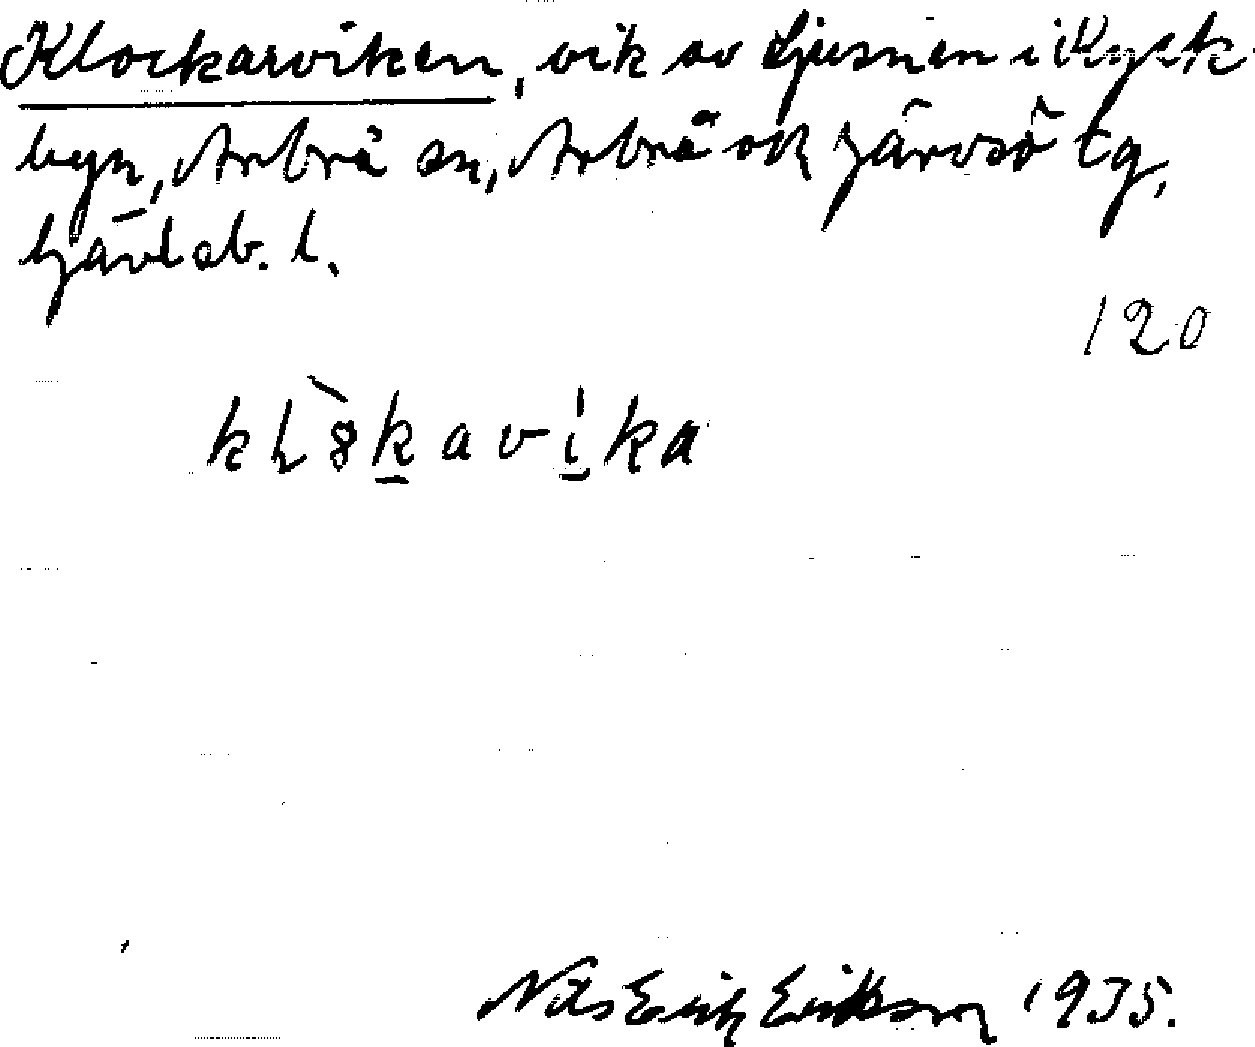 Klockarviken, vik av Ljusnen i Kyrk-
byn, Arbrå sn, Arbrå och Järvsö tg,
Gävleb. l.
120
Nils Erich Erikson 1935.